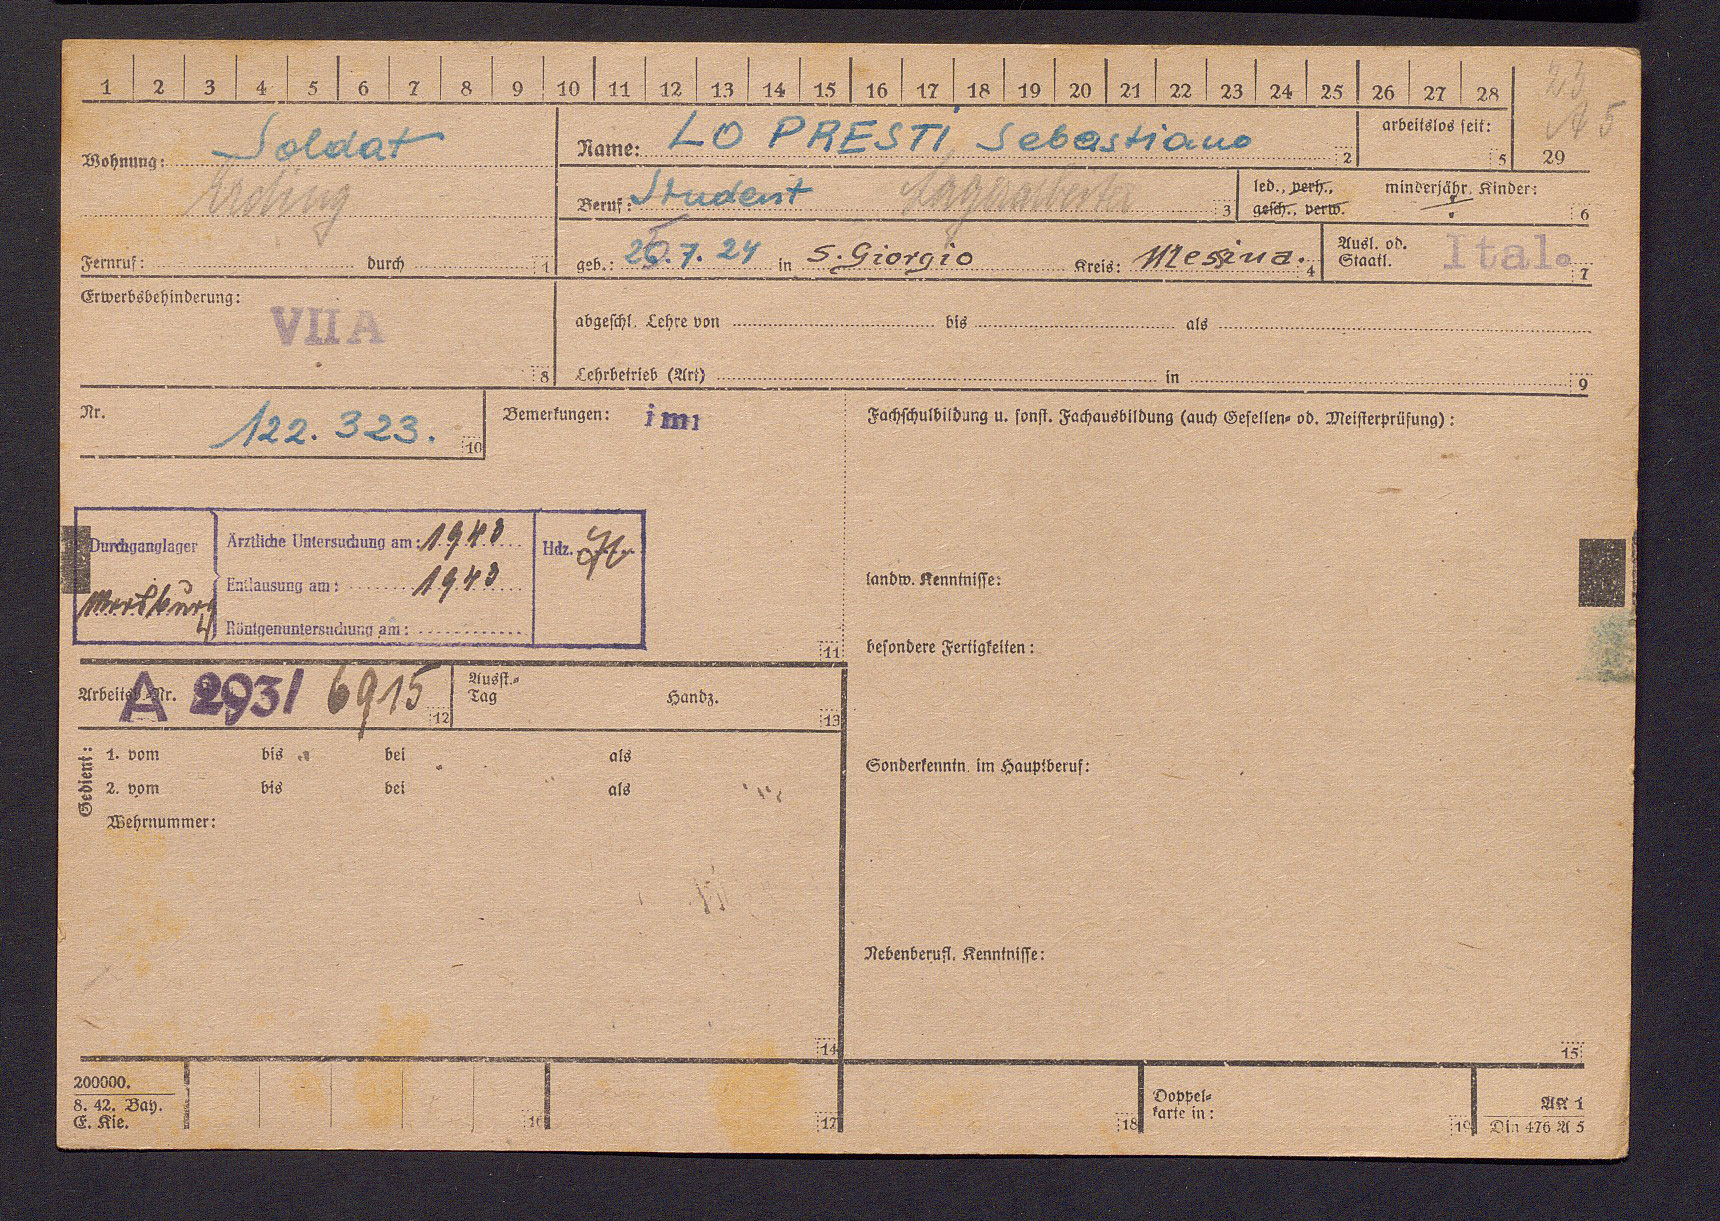 1 2 3 4 5 6 7 8 9 10 11 12 13 14 15 16 17 18 19 20 21 22 23 24 25 26 27 28 29
23
A 5
Wohnung: Soldat
Erding
Fernruf: durch 1
Name: LO PRESTI Sebastiano 2
arbeitslos seit: 5
Beruf: Student 3
led., verh., gesch., verw.
minderjähr. Kinder: 6
geb.: 26.7.24 in S. Giorgio Kreis: Messina. 4
Ausl. od. Staatl. Ital. 7
Erwerbsbehinderung:
VII A
8
abgeschl. Lehre von bis als
Lehrbetrieb (Art) in 9
Nr. 122.323. 10
Bemerkungen: imi
Fachschulbildung u. sonst. Fachausbildung (auch Gesellen- od. Meisterprüfung):
Durchganglager
Ärztliche Untersuchung am: 1943
Entlausung am: 1943
Röntgenuntersuchung am:
Hdz.
11
landw. Kenntnisse:
besondere Fertigkeiten:
Arbeitsb. Nr. A 293/ 6915 12
Ausst.-Tag
Handz. 13
Gedient:
1. vom bis bei als
2. vom bis bei als
Wehrnummer:
14
Sonderkenntn. im Hauptberuf:
Nebenberufl. Kenntnisse:
15
200000.
8. 42. Bay.
E. Kie.
16 17 18
Doppel-
karte in: 19
AK 1
Din 476 A 5